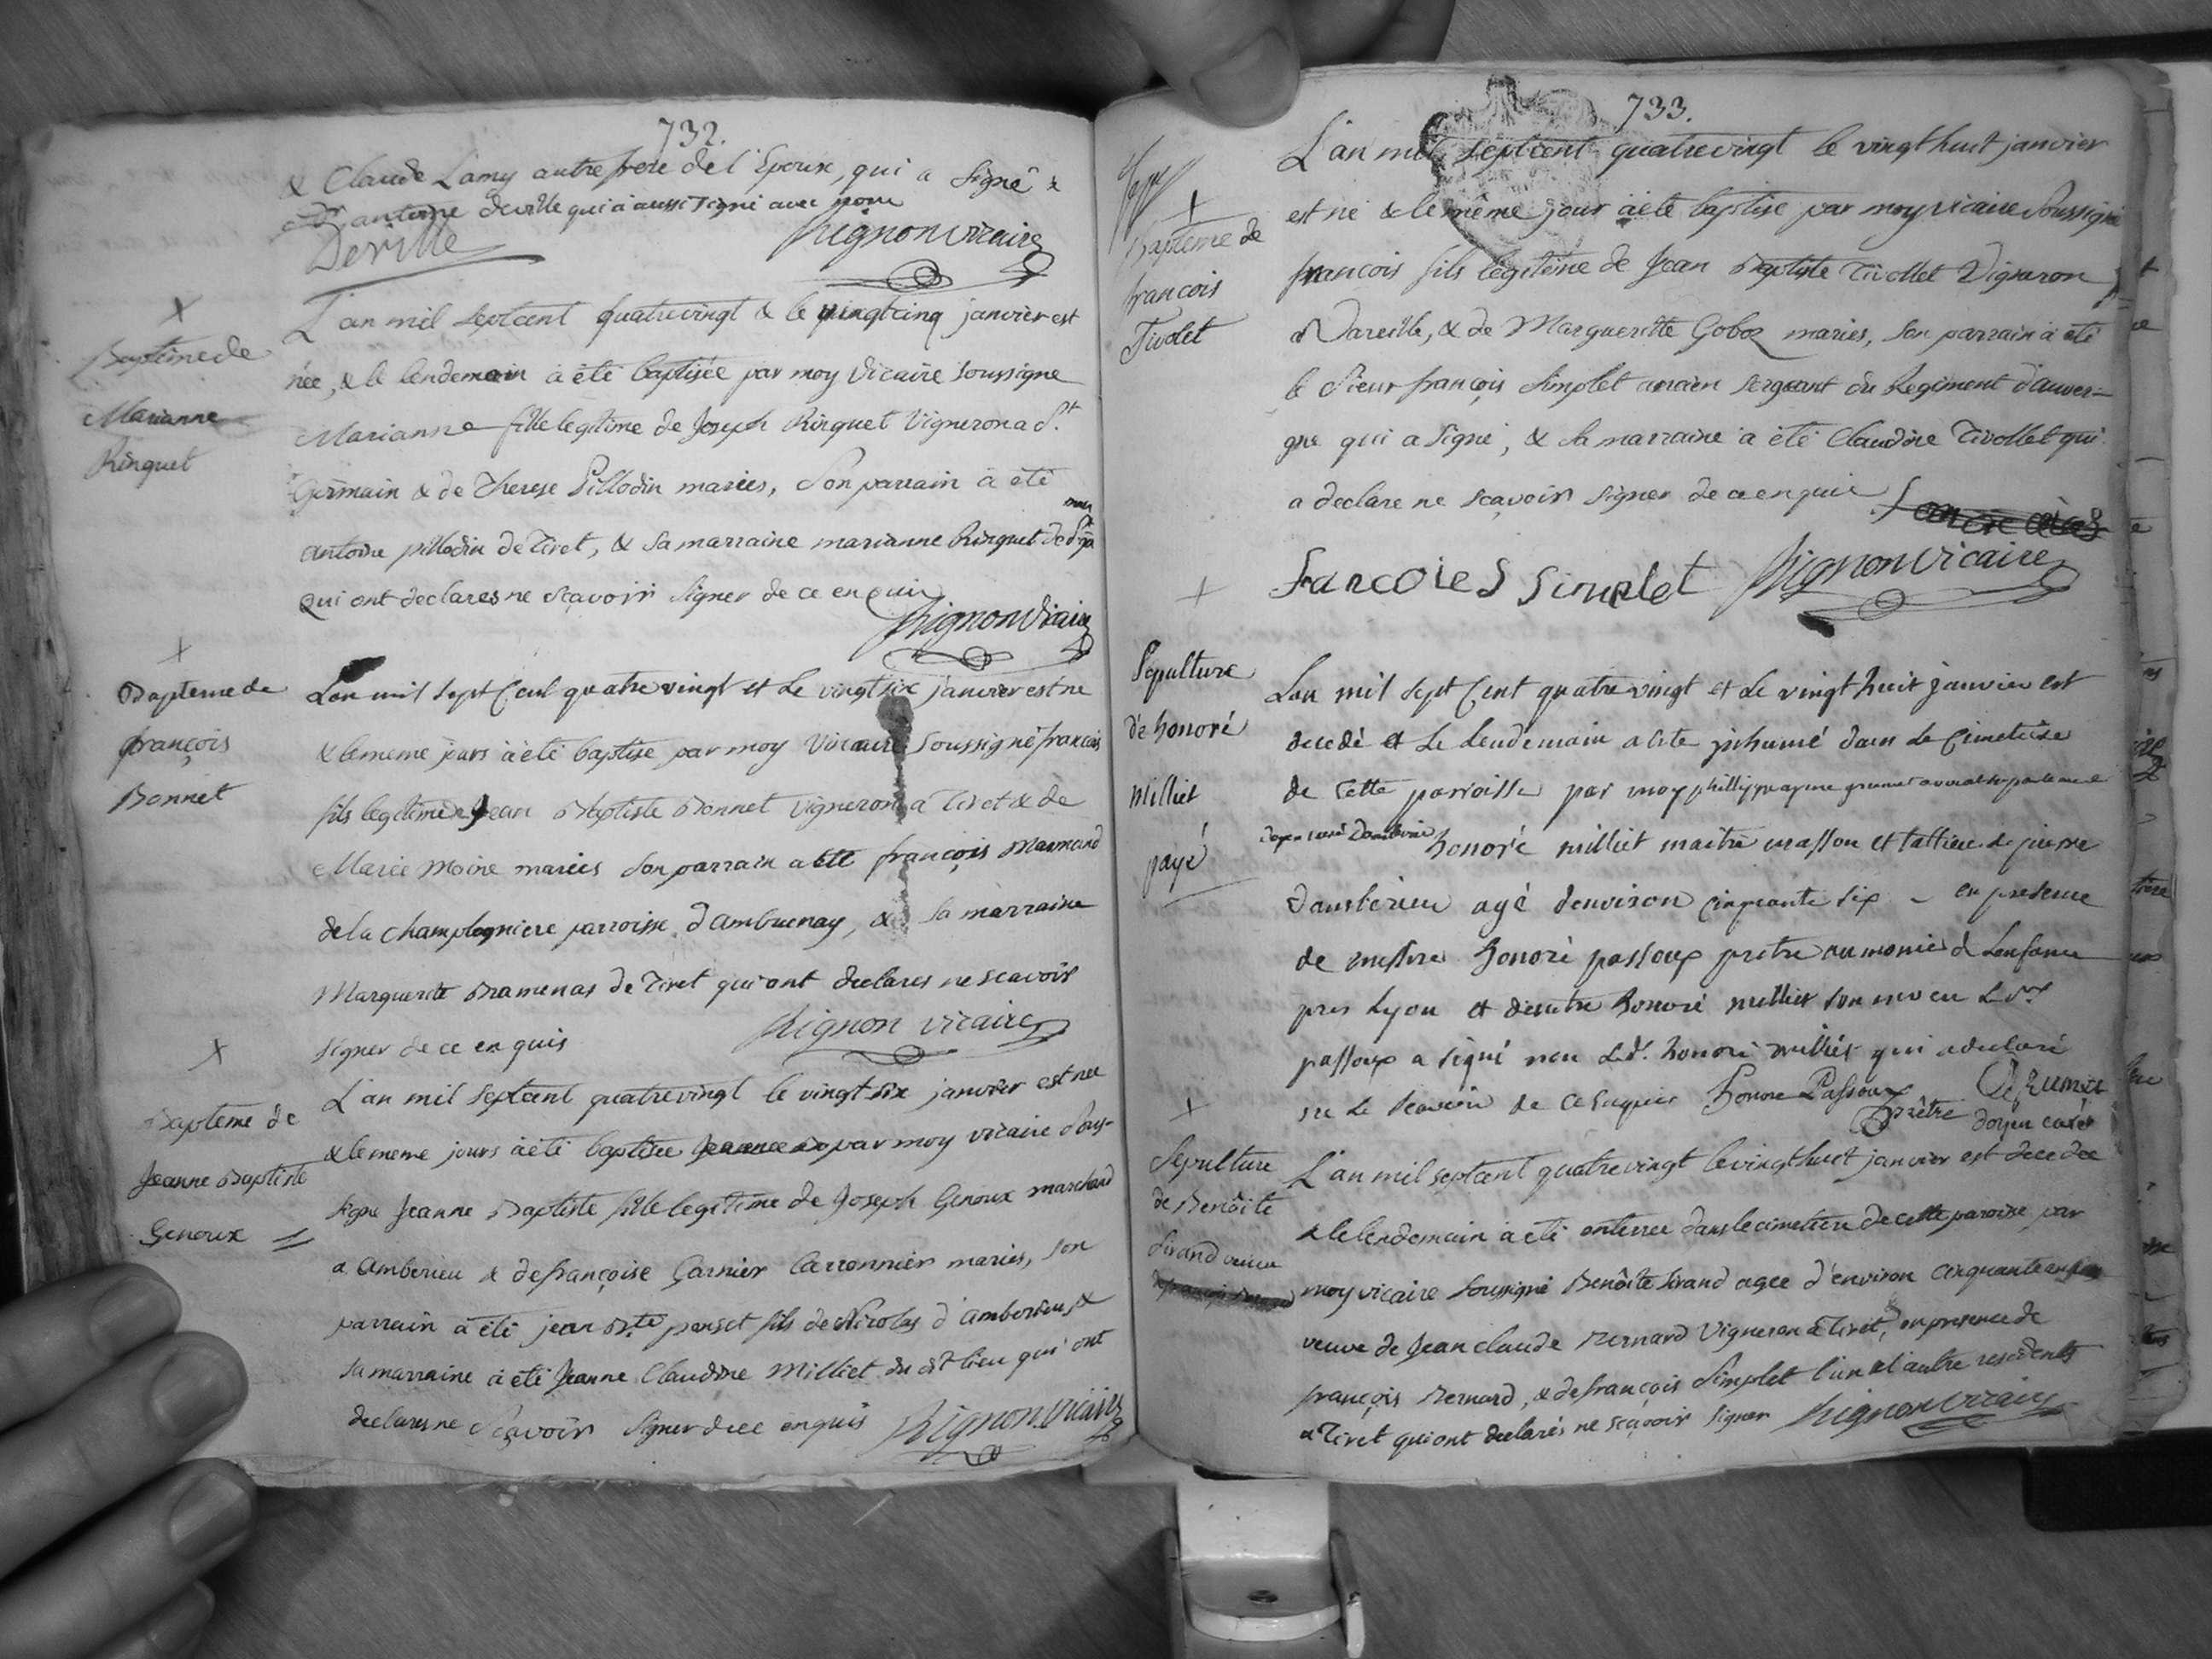 732.
& Claude Lamy autre frere de l'Epoux, qui a signé &
antoine deville qui a aussi signé avec nous
Deville
Rignon vicaire
Baptême de
Marianne
Ringuet
L'an mil septcent quatrevingt & le vingtcinq janvier est
née, & le lendemain à été baptisée par moy vicaire soussigne
Marianne fille legitime de Joseph Ringuet Vigneron a St
Germain & de Therese Pillodin mariés, Son parrain à été
antoine pillodin de Tiret, & sa marraine marianne Ringuet de St
qui ont declares ne sçavoir signer de ce enquis
Rignon vicaire
Bapteme de
françois
Bonnet
L'an mil sept Cent quatre vingt et Le vingt six janvier est ne
& le meme jours à été baptise par moy Vicaire Soussigné francois
fils legitime de Jean Baptiste Bonnet vigneron a Tiret & de
Marie Moine mariés son parrain a été françois Marmand
de la champlogniere parroisse d'ambrenay, & sa marraine
Marguerite Bramenas de Tiret qui ont declares ne scavoir
signer de ce enquis
Rignon vicaire
Bapteme de
Jeanne Baptiste
Genoux
L'an mil septcent quatrevingt le vingt six janvier est nee
& le meme jours à été baptisée par moy vicaire sous-
signé Jeanne Baptiste fille legitime de Joseph Genoux marchand
a Amberieu & de françoise Garnier Carronnier mariés, son
parrain à été jean Bte perset fils de Nicolas d'amberieu &
sa marraine à été Jeanne Claudine Milliet du dt lieu qui ont
declares ne sçavoir signer de ce enquis
Rignon vicaire
733.
Baptême de
françois
Tivolet
L'an mil septcent quatrevingt le vingt huit janvier
est né & le même jour à été baptisé par moy vicaire Soussigné
françois fils légitime de Jean Baptiste Tivollet Vigneron
a Vareille, & de Marguerite Goboz mariés, son parrain à été
le Sieur françois Simplet ancien sergeant du Regiment d'auver=
gne qui a signé, & sa marraine a été Claudine Tivollet qui
a declare ne sçavoir signer de ce enquis
Farcoies Simplet
Rignon vicaire
Sepulture
de honoré
Milliet
payé
L'an mil sept Cent quatre vingt et Le vingt huit janvier est
decedé et Le Lendemain a été inhumé dans Le Cimetiere
de Cette parroisse par moy
honoré milliet maitre masson et tallieur de pierre
d'amberieu agé d'environ Cinquante six - en presence
de messire honoré passoux pretre aumonier de Lenfance
pres Lyon et d'autre honoré milliet son neveu Le Sr
passoux a signé non Led. honoré milliet qui a declaré
ne Le scavoir de Ce enquis
Honore Passoux
prêtre
Grumet
doyen curé
Sepulture
de Benôite
Sirand veuve
L'an mil septcent quatrevingt le vingthuit janvier est decedee
& le lendemain à été enterree dans le cimetiere de cette paroisse par
moy vicaire Soussigné Benôite Sirand agée d'environ cinquante ans
veuve de Jean claude Bernard Vigneron a Tiret, en presence de
françois Bernard, & de françois Simplet l'un & l'autre residents
a Tiret qui ont declarés ne sçavoir signer
Rignon vicaire